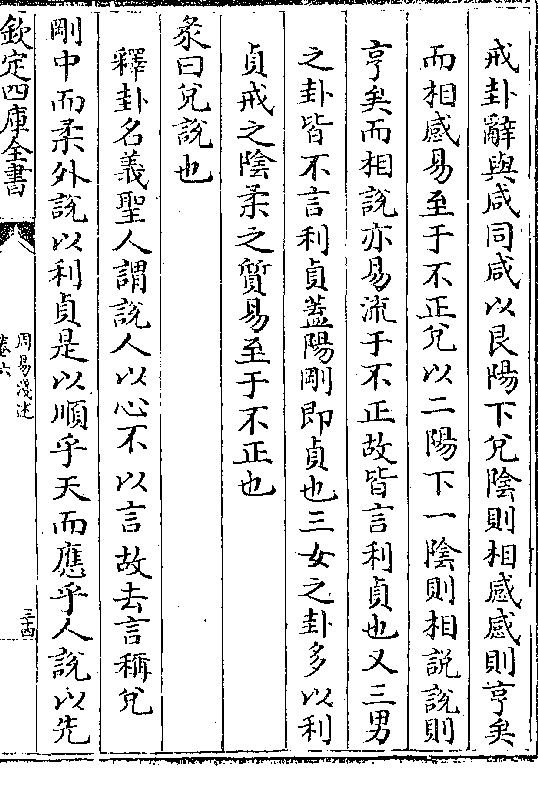 戒卦辭與咸同咸以艮陽下兌陰則相感感則亨矣
而相感易至于不正兌以二陽下一陰則相説說則
亨矣而相說亦易流于不正故皆言利貞也又三男
之卦皆不言利貞蓋陽剛即貞也三女之卦多以利
貞戒之陰柔之質易至于不正也
彖曰兌說也
釋卦名義聖人謂說人以心不以言故去言稱兌
剛中而柔外說以利貞是以順乎天而應乎人說以先
欽定四庫全書
周易淺述
卷六
三十四